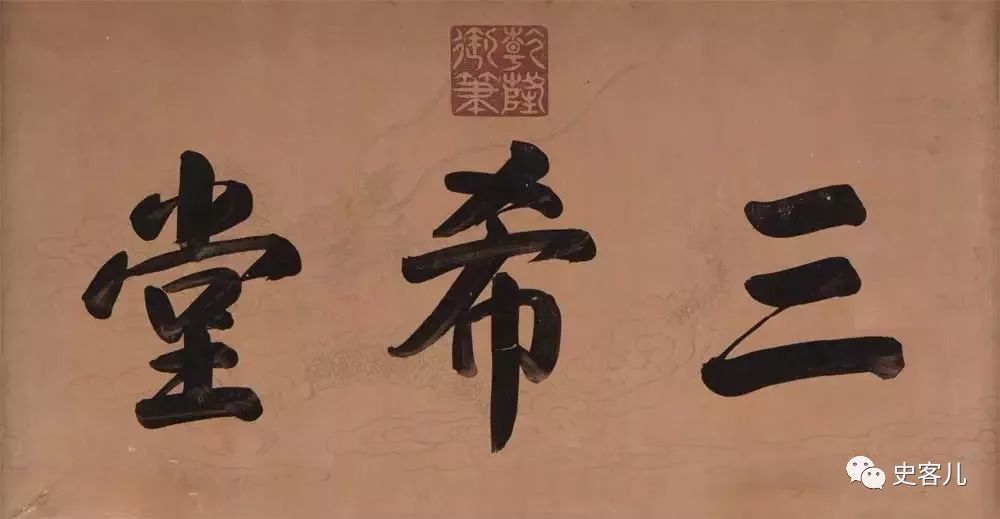 乾隆御筆
三希堂
史客儿